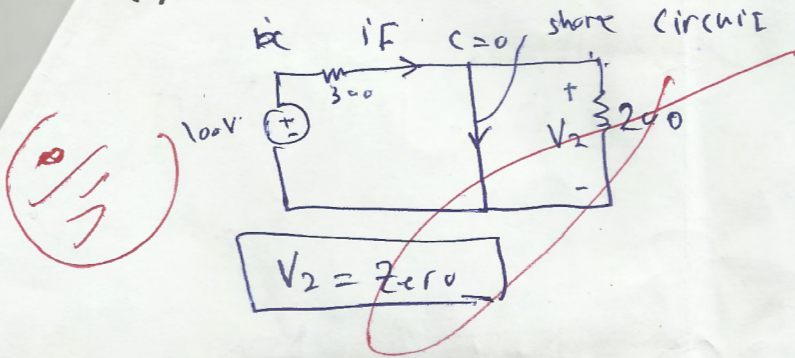 iF C=0 shore circuit
300
100V
+
V2 200
-
V2 = Zero